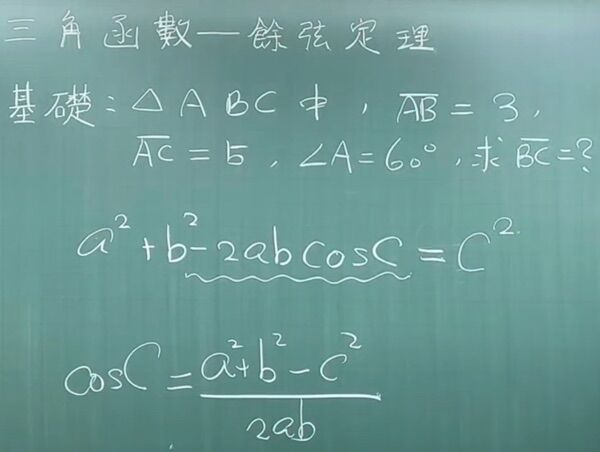 三角函數—餘弦定理
基礎:△ABC中,A̅B̅=3,
A̅C̅=5,∠A=60°,求B̅C̅=?
a²+b²-2abcosC=c²
cosC=(a²+b²-c²)/2ab